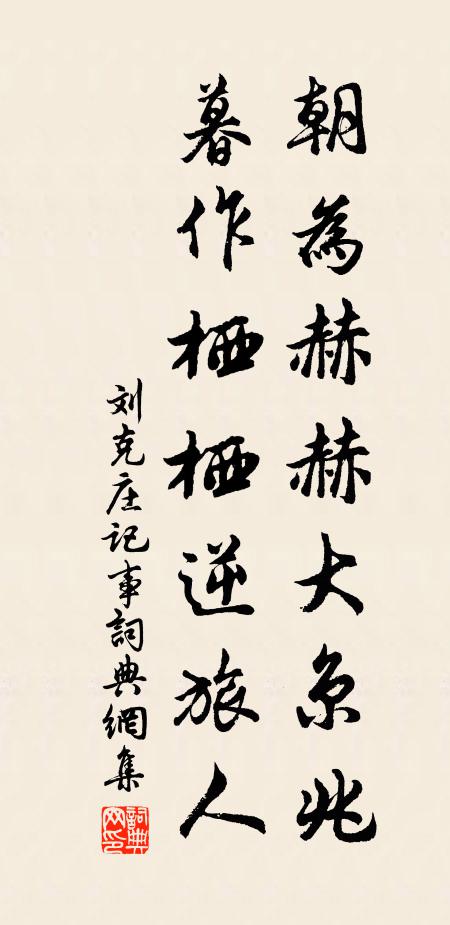 朝為赫赫大京兆
暮作栖栖逆旅人
刘克庄记事詞典網集
詞典網印